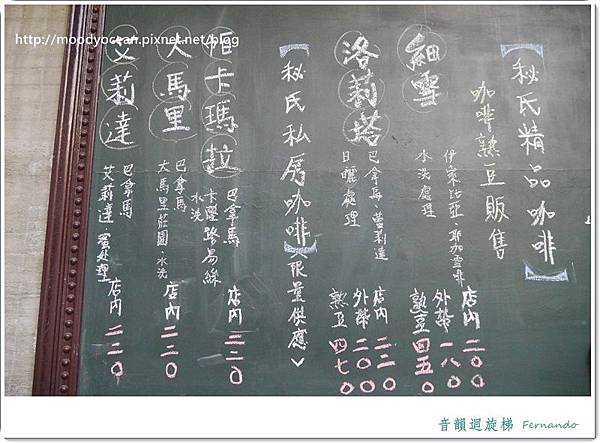 http://moodyocean.pixnet.net/blog
【秘氏精品咖啡】
咖啡熟豆販售
細雪
伊索比亞 耶加雪啡
水洗處理
店內 二〇〇
外帶 一八〇
熟豆 四五〇
洛莉塔
巴拿馬·茵莉達
日曬處理
店內 二二〇
外帶 二〇〇
熟豆 四七〇
【秘氏私房咖啡】〈限量供應〉
卡瑪拉
巴拿馬
卡瑟路易絲
水洗
店內 二二〇
大馬里
巴拿馬
大馬里莊園·水洗
店內 二二〇
艾莉達
巴拿馬
艾莉達·蜜処理
店內 二二〇
音韻迴旋梯 Fernando